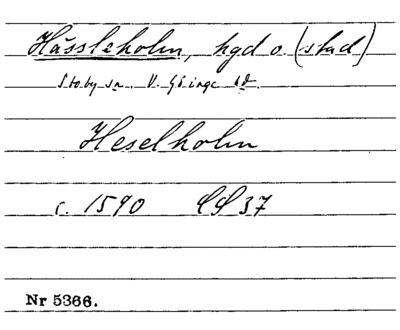 Hässleholm, hgd o. (stad)
Stoby sn. V. Göinge hd.
Heselholm
c. 1590 CS 37
Nr 5366.